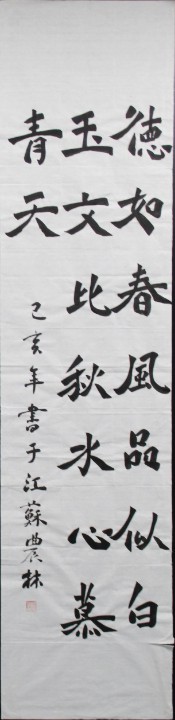 徳如春風品似白
玉文比秋水心慕
青天
己亥年書于江蘇農林